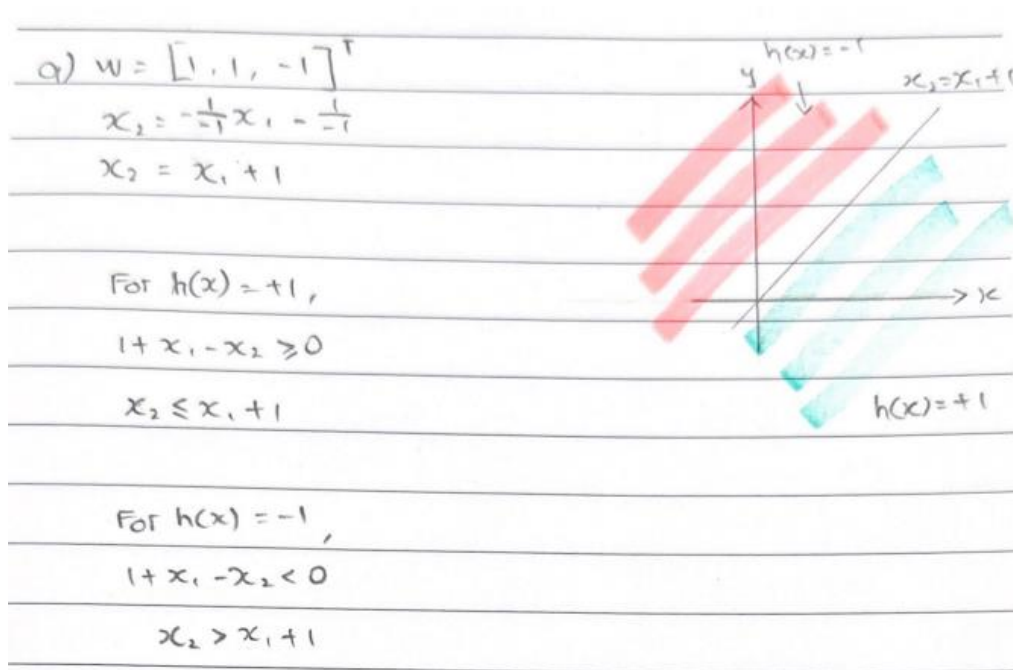 a) w = [1, 1, -1]ᵀ
x₂ = -1/-1 x₁ - 1/-1
x₂ = x₁ + 1
For h(x) = +1,
1 + x₁ - x₂ ≥ 0
x₂ ≤ x₁ + 1
For h(x) = -1,
1 + x₁ - x₂ < 0
x₂ > x₁ + 1
h(x) = -1
y
x₂ = x₁ + 1
x
h(x) = +1